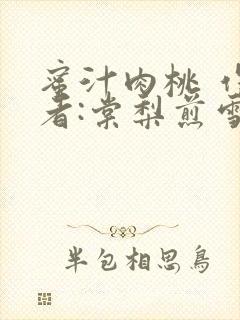 蜜汁肉桃
者:棠梨煎雪
半包相思鳥